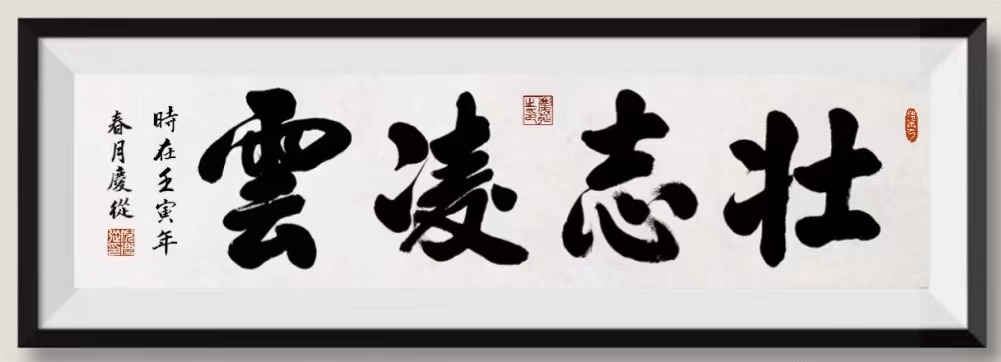 壮志凌雲
時在壬寅年
春月慶從